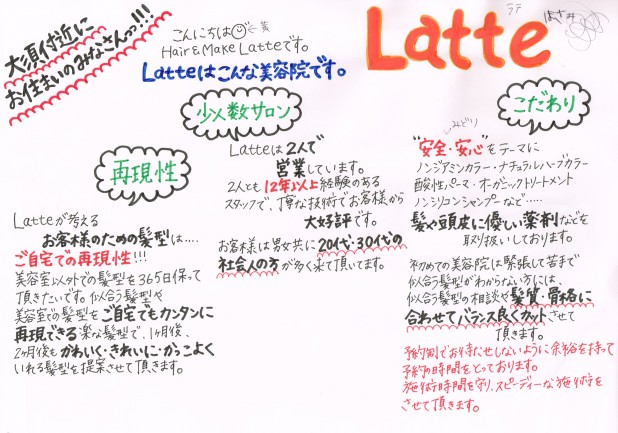 大須付近に
お住まいのみなさんっ!!!
こんにちは 黄
Hair&Make Latteです。
Latteはこんな美容院です。
ラテ
Latte
はさみ
再現性
Latteが考える
お客様のための髪型は....
ご自宅での再現性!!!
美容室以外での髪型を365日保って
頂きたいです。似合う髪型や
美容室での髪型をご自宅でもカンタンに
再現できる楽な髪型で、1ヶ月後、
2ヶ月後もかわいく・きれいに・かっこよく
いれる髪型を提案させて頂きます。
少人数サロン
Latteは2人で
営業しています。
2人とも12年以上経験のある
スタッフで、丁寧な技術でお客様から
大好評です。
お客様は男女共に20代・30代の
社会人の方が多く来て頂いてます。
こだわり
みどり
"安全・安心"をテーマに
ノンジアミンカラー・ナチュラルハーブカラー
酸性パーマ・オーガニックトリートメント
ノンシリコンシャンプーなど.....
髪や頭皮に優しい薬剤などを
取り扱いしております。
初めての美容院は緊張して苦手で
似合う髪型がわからない方には、
似合う髪型の相談や髪質・骨格に
合わせてバランス良くカットさせて
頂きます。
予約制でお待たせしないように余裕を持って
予約時間をとっております。
施術時間を守り、スピーディーな施術を
させて頂きます。